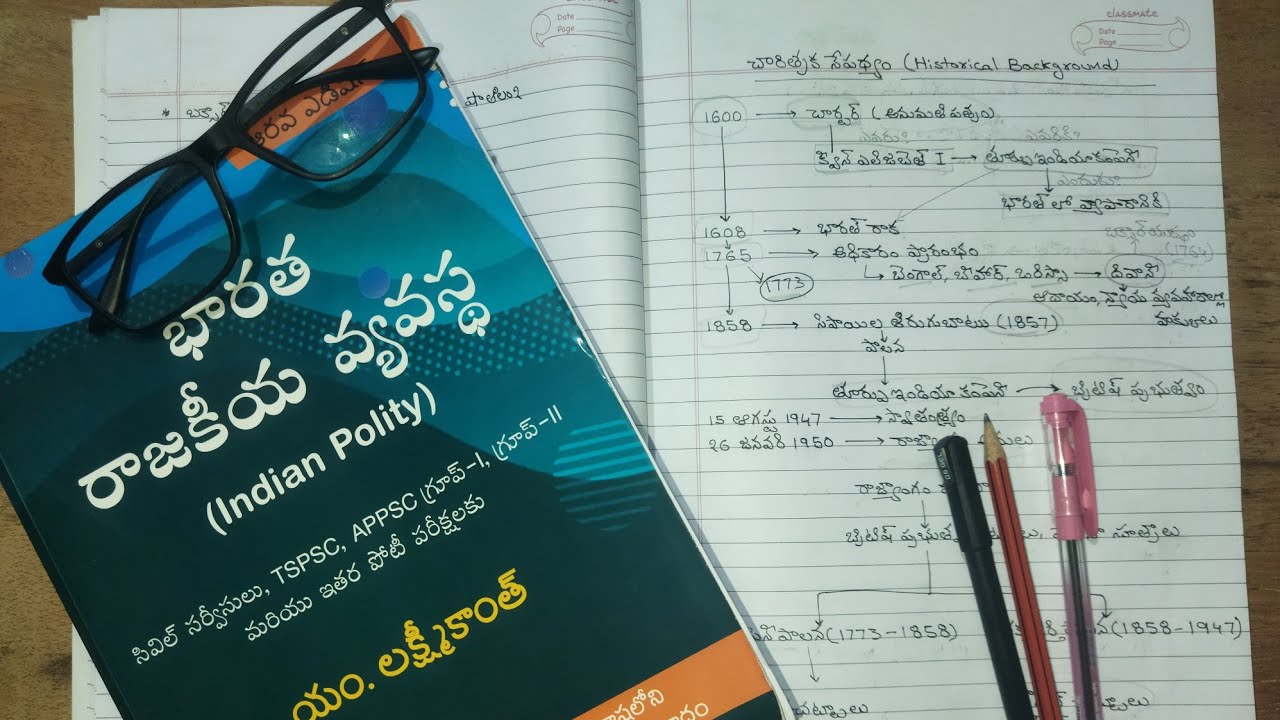 భారత
రాజకీయ వ్యవస్థ
(Indian Polity)
సివిల్ సర్వీసులు, TSPSC, APPSC గ్రూప్-I, గ్రూప్-II
మరియు ఇతర పోటీ పరీక్షలకు
యం. లక్ష్మీకాంత్
Date
Page
classmate
Date
Page
చారిత్రక నేపథ్యం (Historical Background)
1600 → చార్టర్ (అనుమతి పత్రం)
ఎవరు? ఎవరికి?
క్వీన్ ఎలిజిబెత్ I → తూర్పు ఇండియా కంపెనీ
ఎందుకు?
భారత్ లో వ్యాపారానికి
1608 → భారత్ రాక
1765 → అధికారం ప్రారంభం
(1764)
1773
→ బెంగాల్, బీహార్, ఒరిస్సా → దివానీ
ఆదాయం, న్యాయ వ్యవహారాల్లో
హక్కులు
1858 → సిపాయిల తిరుగుబాటు (1857)
పాలన
తూర్పు ఇండియా కంపెనీ → బ్రిటిష్ ప్రభుత్వం
15 ఆగస్టు 1947 → స్వాతంత్ర్యం
26 జనవరి 1950 →
రాజ్యాంగం
బ్రిటిష్
సూత్రాలు
(1773-1858)
(1858-1947)